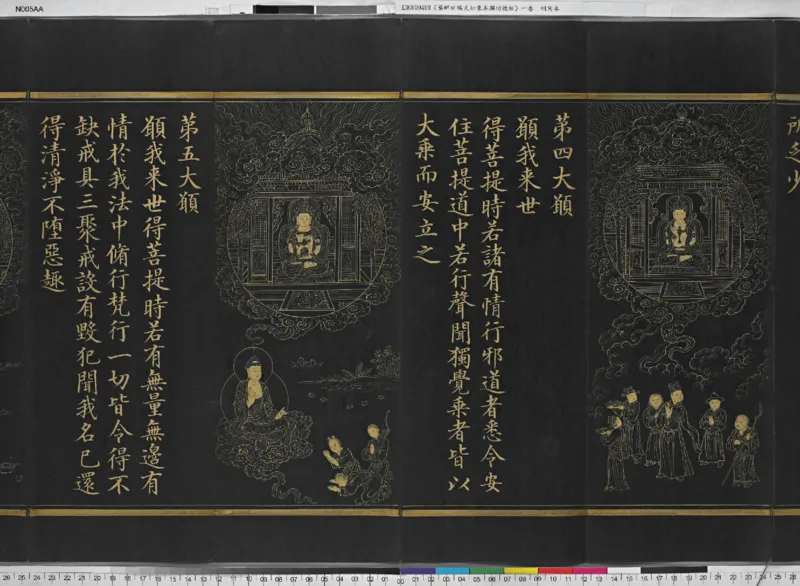 N005AA
《藥師琉璃光如來本願功德經》一卷 明寫本
所乏少
第四大願
願我来世
得菩提時若諸有情行邪道者悉令安
住菩提道中若行聲聞獨覺乘者皆以
大乘而安立之
第五大願
願我来世得菩提時若有無量無邊有
情於我法中脩行梵行一切皆令得不
缺戒具三聚戒設有毀犯聞我名已還
得清淨不堕惡趣